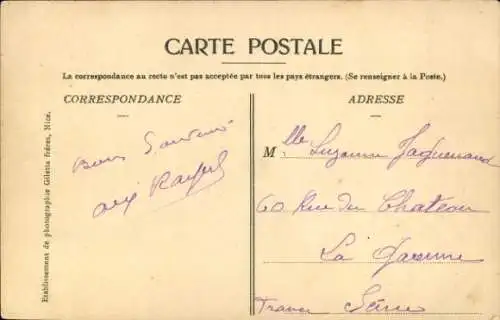 CARTE POSTALE
La correspondance au recto n'est pas acceptée par tous les pays étrangers. (Se renseigner à la Poste.)
CORRESPONDANCE
Bons Souvenirs
ADRESSE
Mlle Suzanne
60 Rue du Chateau
La Garenne
France Seine
Etablissement de photographie Giletta Frères, Nice.